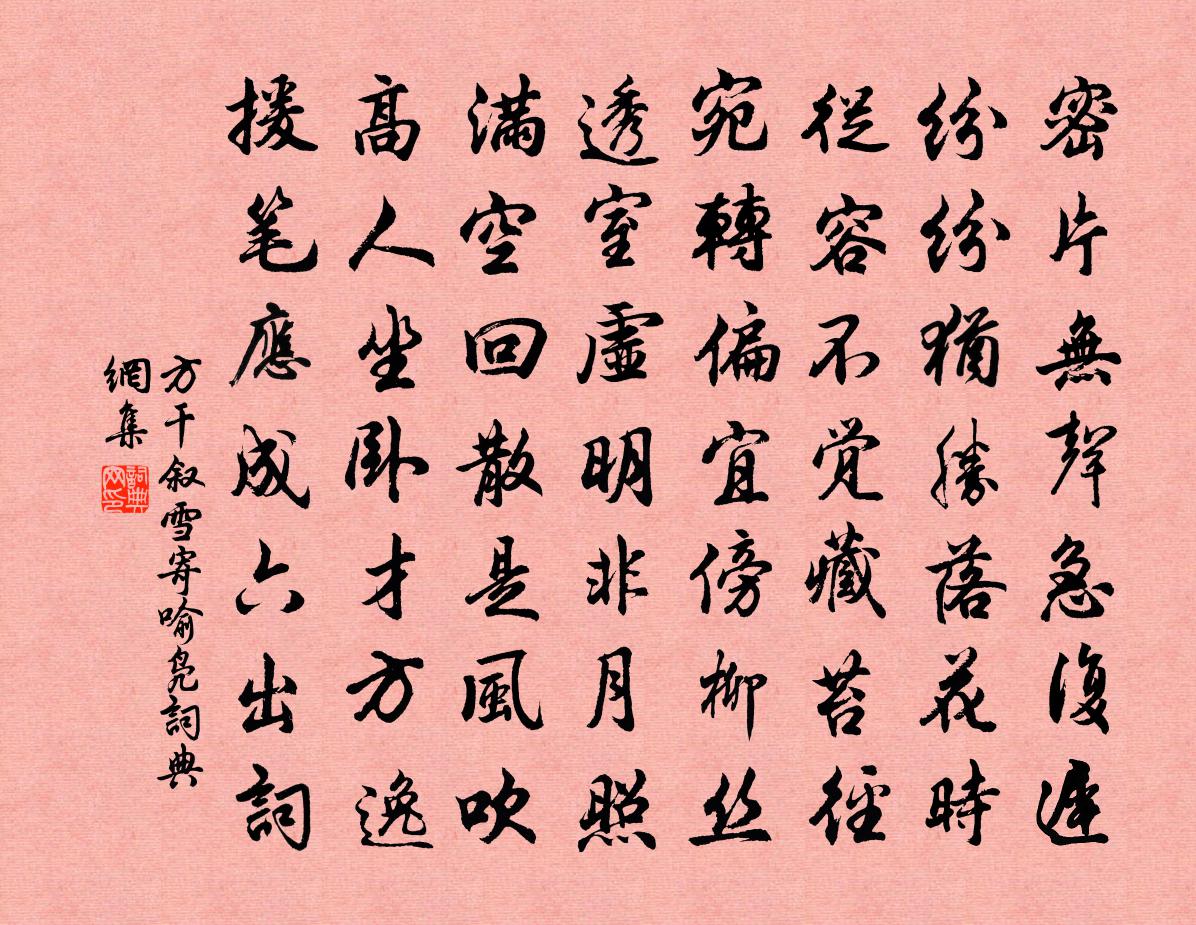 密片無聲急復遲
紛紛猶勝落花時
從容不覺藏苔徑
宛轉偏宜傍柳丝
透室虛明非月照
滿空回散是風吹
高人坐卧才方逸
援笔應成六出詞
方干叙雪寄喻凫詞典
網集
詞典網印